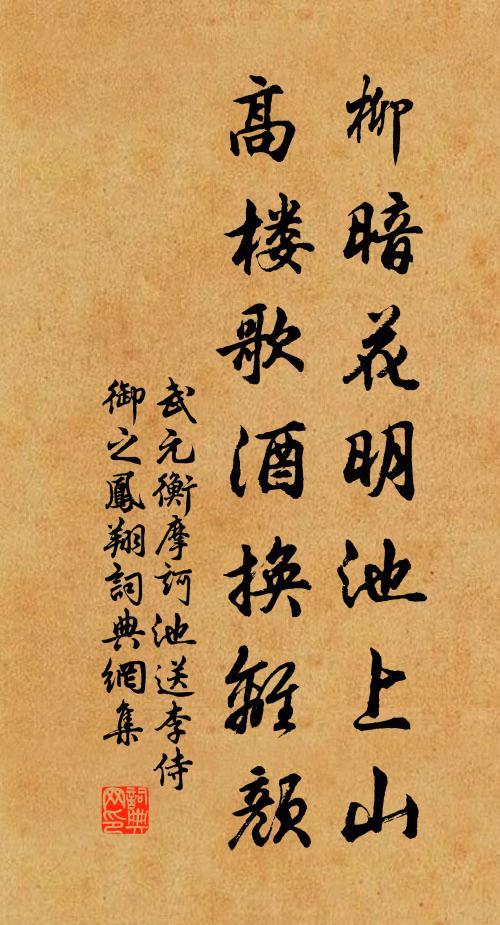 柳暗花明池上山
高楼歌酒換離顔
武元衡摩訶池送李侍
御之鳳翔詞典網集
詞典
网印